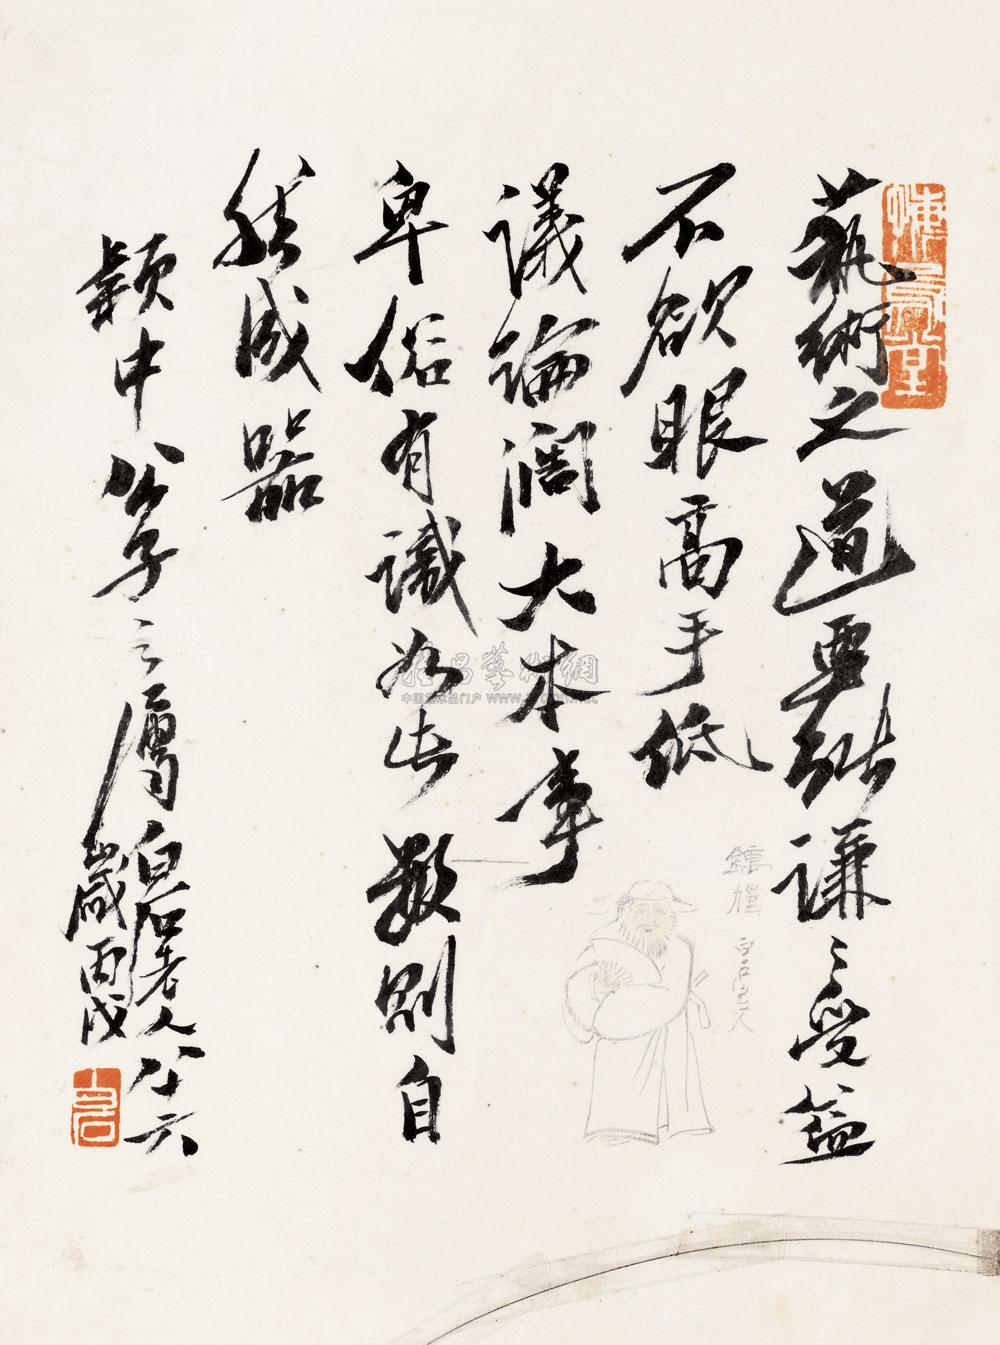 藝術之道要能謙謙受益
不欲眼高手低
議論闊大本事
卑俗有識如此數則自
然成器
穎中公子之屬
白石老人八十六
歲丙戌
悔烏堂
白石